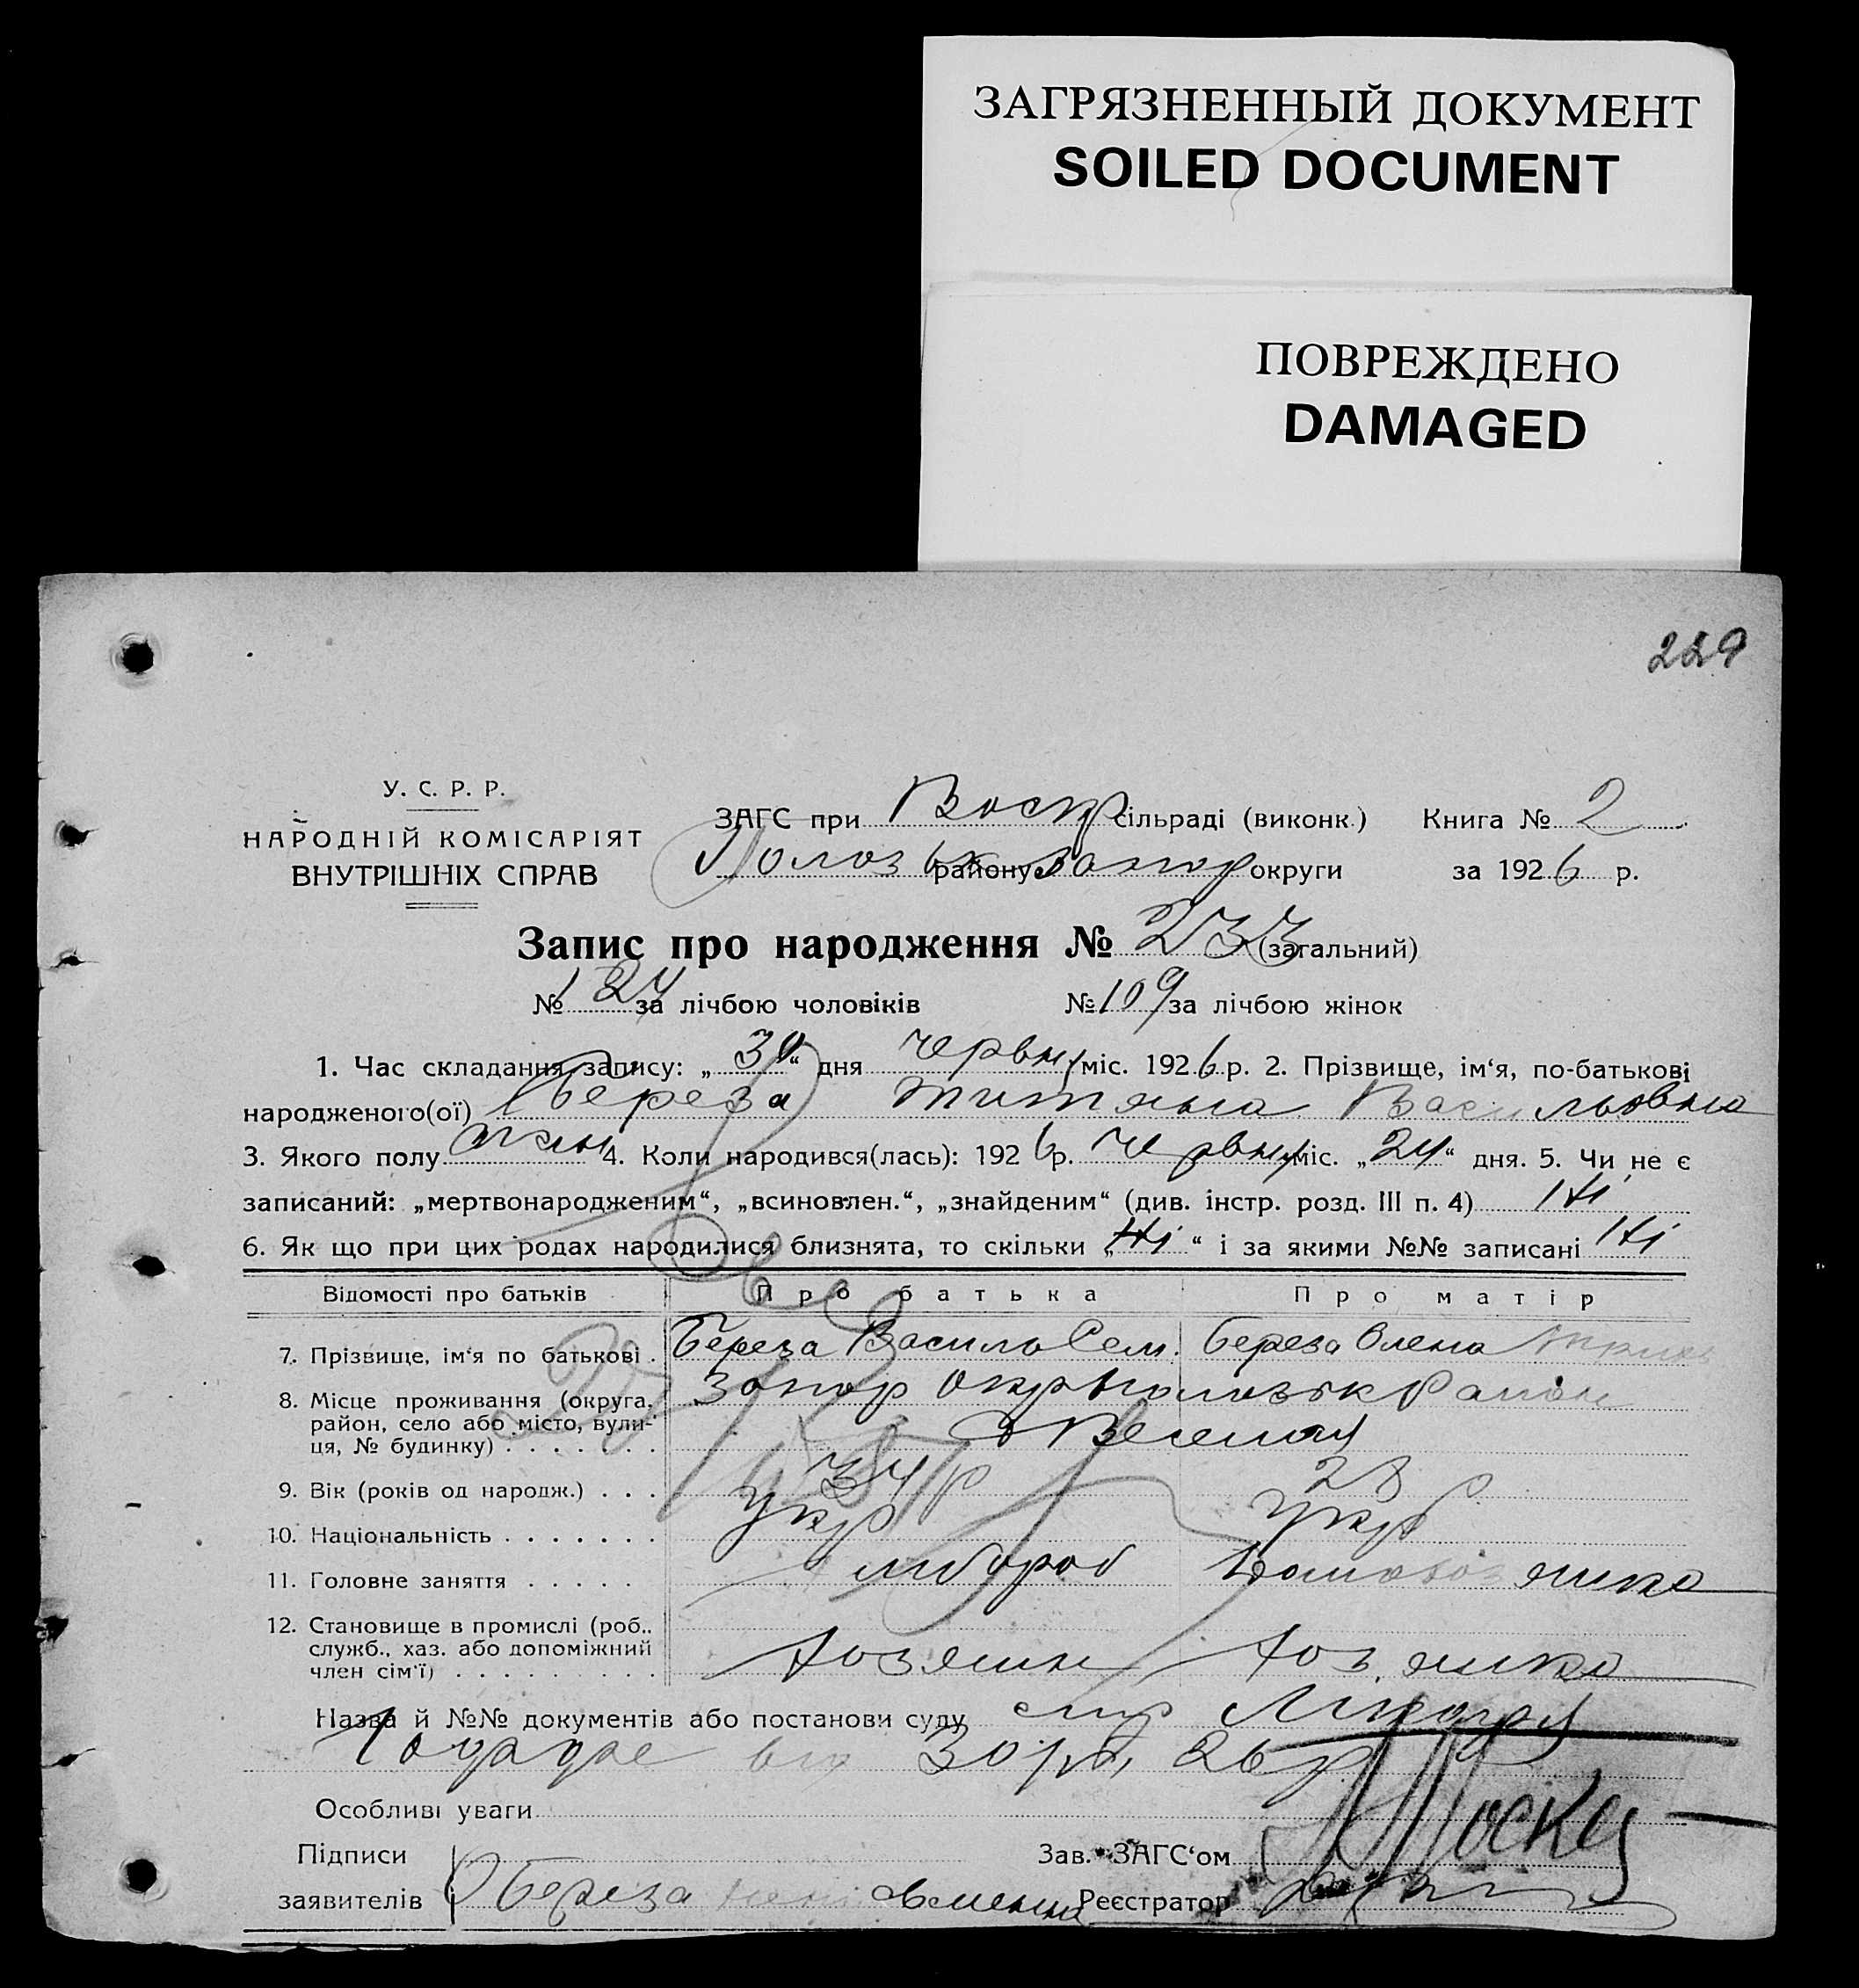 ЗАГРЯЗНЕННЫЙ ДОКУМЕНТ
SOILED DOCUMENT
ПОВРЕЖДЕНО
DAMAGED
229
У. С. Р. Р.
НАРОДНІЙ КОМІСАРІЯТ
ВНУТРІШНІХ СПРАВ
ЗАГС при сільраді (виконк.) Книга № 2
району Запор округи за 1926 р.
Запис про народження № 233 (загальний)
№ 124 за лічбою чоловіків № 109 за лічбою жінок
1. Час складання запису: „30“ дня червня міс. 1926 р. 2. Прізвище, ім‘я, по-батькові
народженого(ої) Береза Титяна Васильовна
3. Якого полу жін 4. Коли народився(лась): 1926 р. червня міс. „24“ дня. 5. Чи не є
записаний: „мертвонародженим“, „всиновлен.“, „знайденим“ (див. інстр. розд. III п. 4) Ні
6. Як що при цих родах народилися близнята, то скільки „Ні“ і за якими №№ записані Ні
Відомості про батьків Про батька Про матір
7. Прізвище, ім‘я по батькові . Береза Василь Сем. Береза Олена
8. Місце проживання (округа, район, село або місто, вули-ця, № будинку) . . . . . . . Запор Окр
9. Вік (років од народж.) . . . 34 р 28 р
10. Національність . . . . . . . Укр Укр
11. Головне заняття . . . . . хлібороб
12. Становище в промислі (роб., служб., хаз. або допоміжний член сім‘ї) . . . . . . . . . Хозяин Хозяйка
Назва й №№ документів або постанови суду
від 26 р
Особливі уваги
Підписи Зав. ЗАГС‘ом
заявителів Береза Реєстратор